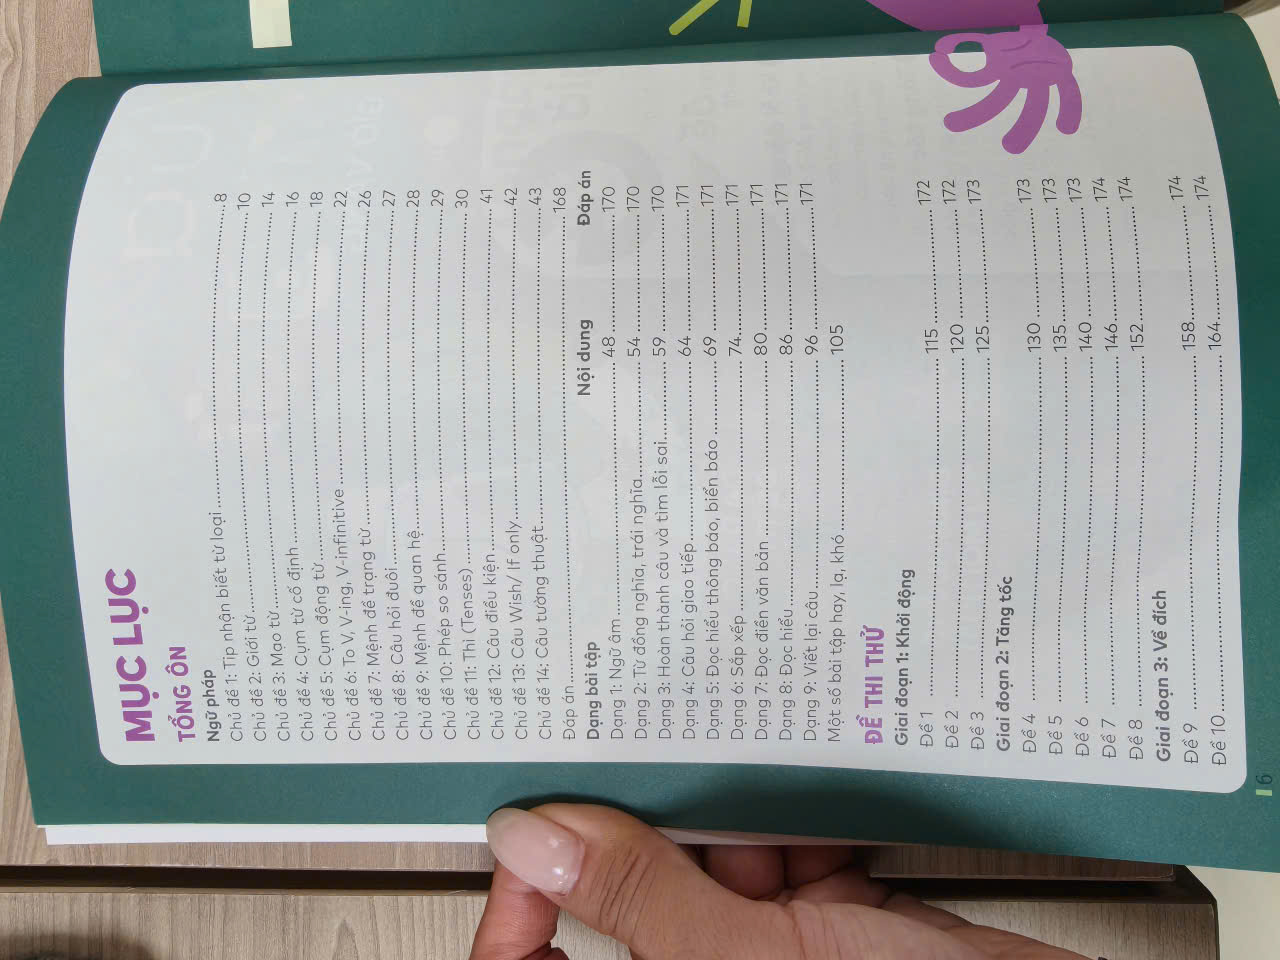 MỤC LỤC
TỔNG ÔN
Ngữ pháp
Chủ đề 1: Tip nhận biết từ loại 8
Chủ đề 2: Giới từ 10
Chủ đề 3: Mạo từ 14
Chủ đề 4: Cụm từ cố định 16
Chủ đề 5: Cụm động từ 18
Chủ đề 6: To V, V-ing, V-infinitive 22
Chủ đề 7: Mệnh đề trạng từ 26
Chủ đề 8: Câu hỏi đuôi 27
Chủ đề 9: Mệnh đề quan hệ 28
Chủ đề 10: Phép so sánh 29
Chủ đề 11: Thì (Tenses) 30
Chủ đề 12: Câu điều kiện 41
Chủ đề 13: Câu Wish/ If only 42
Chủ đề 14: Câu tường thuật 43
Đáp án 168
Dạng bài tập Nội dung Đáp án
Dạng 1: Ngữ âm 48 170
Dạng 2: Từ đồng nghĩa, trái nghĩa 54 170
Dạng 3: Hoàn thành câu và tìm lỗi sai 59 170
Dạng 4: Câu hỏi giao tiếp 64 171
Dạng 5: Đọc hiểu thông báo, biển báo 69 171
Dạng 6: Sắp xếp 74 171
Dạng 7: Đọc điền văn bản 80 171
Dạng 8: Đọc hiểu 86 171
Dạng 9: Viết lại câu 96 171
Một số bài tập hay, lạ, khó 105
ĐỀ THI THỬ
Giai đoạn 1: Khởi động
Đề 1 115 172
Đề 2 120 172
Đề 3 125 173
Giai đoạn 2: Tăng tốc
Đề 4 130 173
Đề 5 135 173
Đề 6 140 173
Đề 7 146 174
Đề 8 152 174
Giai đoạn 3: Về đích
Đề 9 158 174
Đề 10 164 174
6